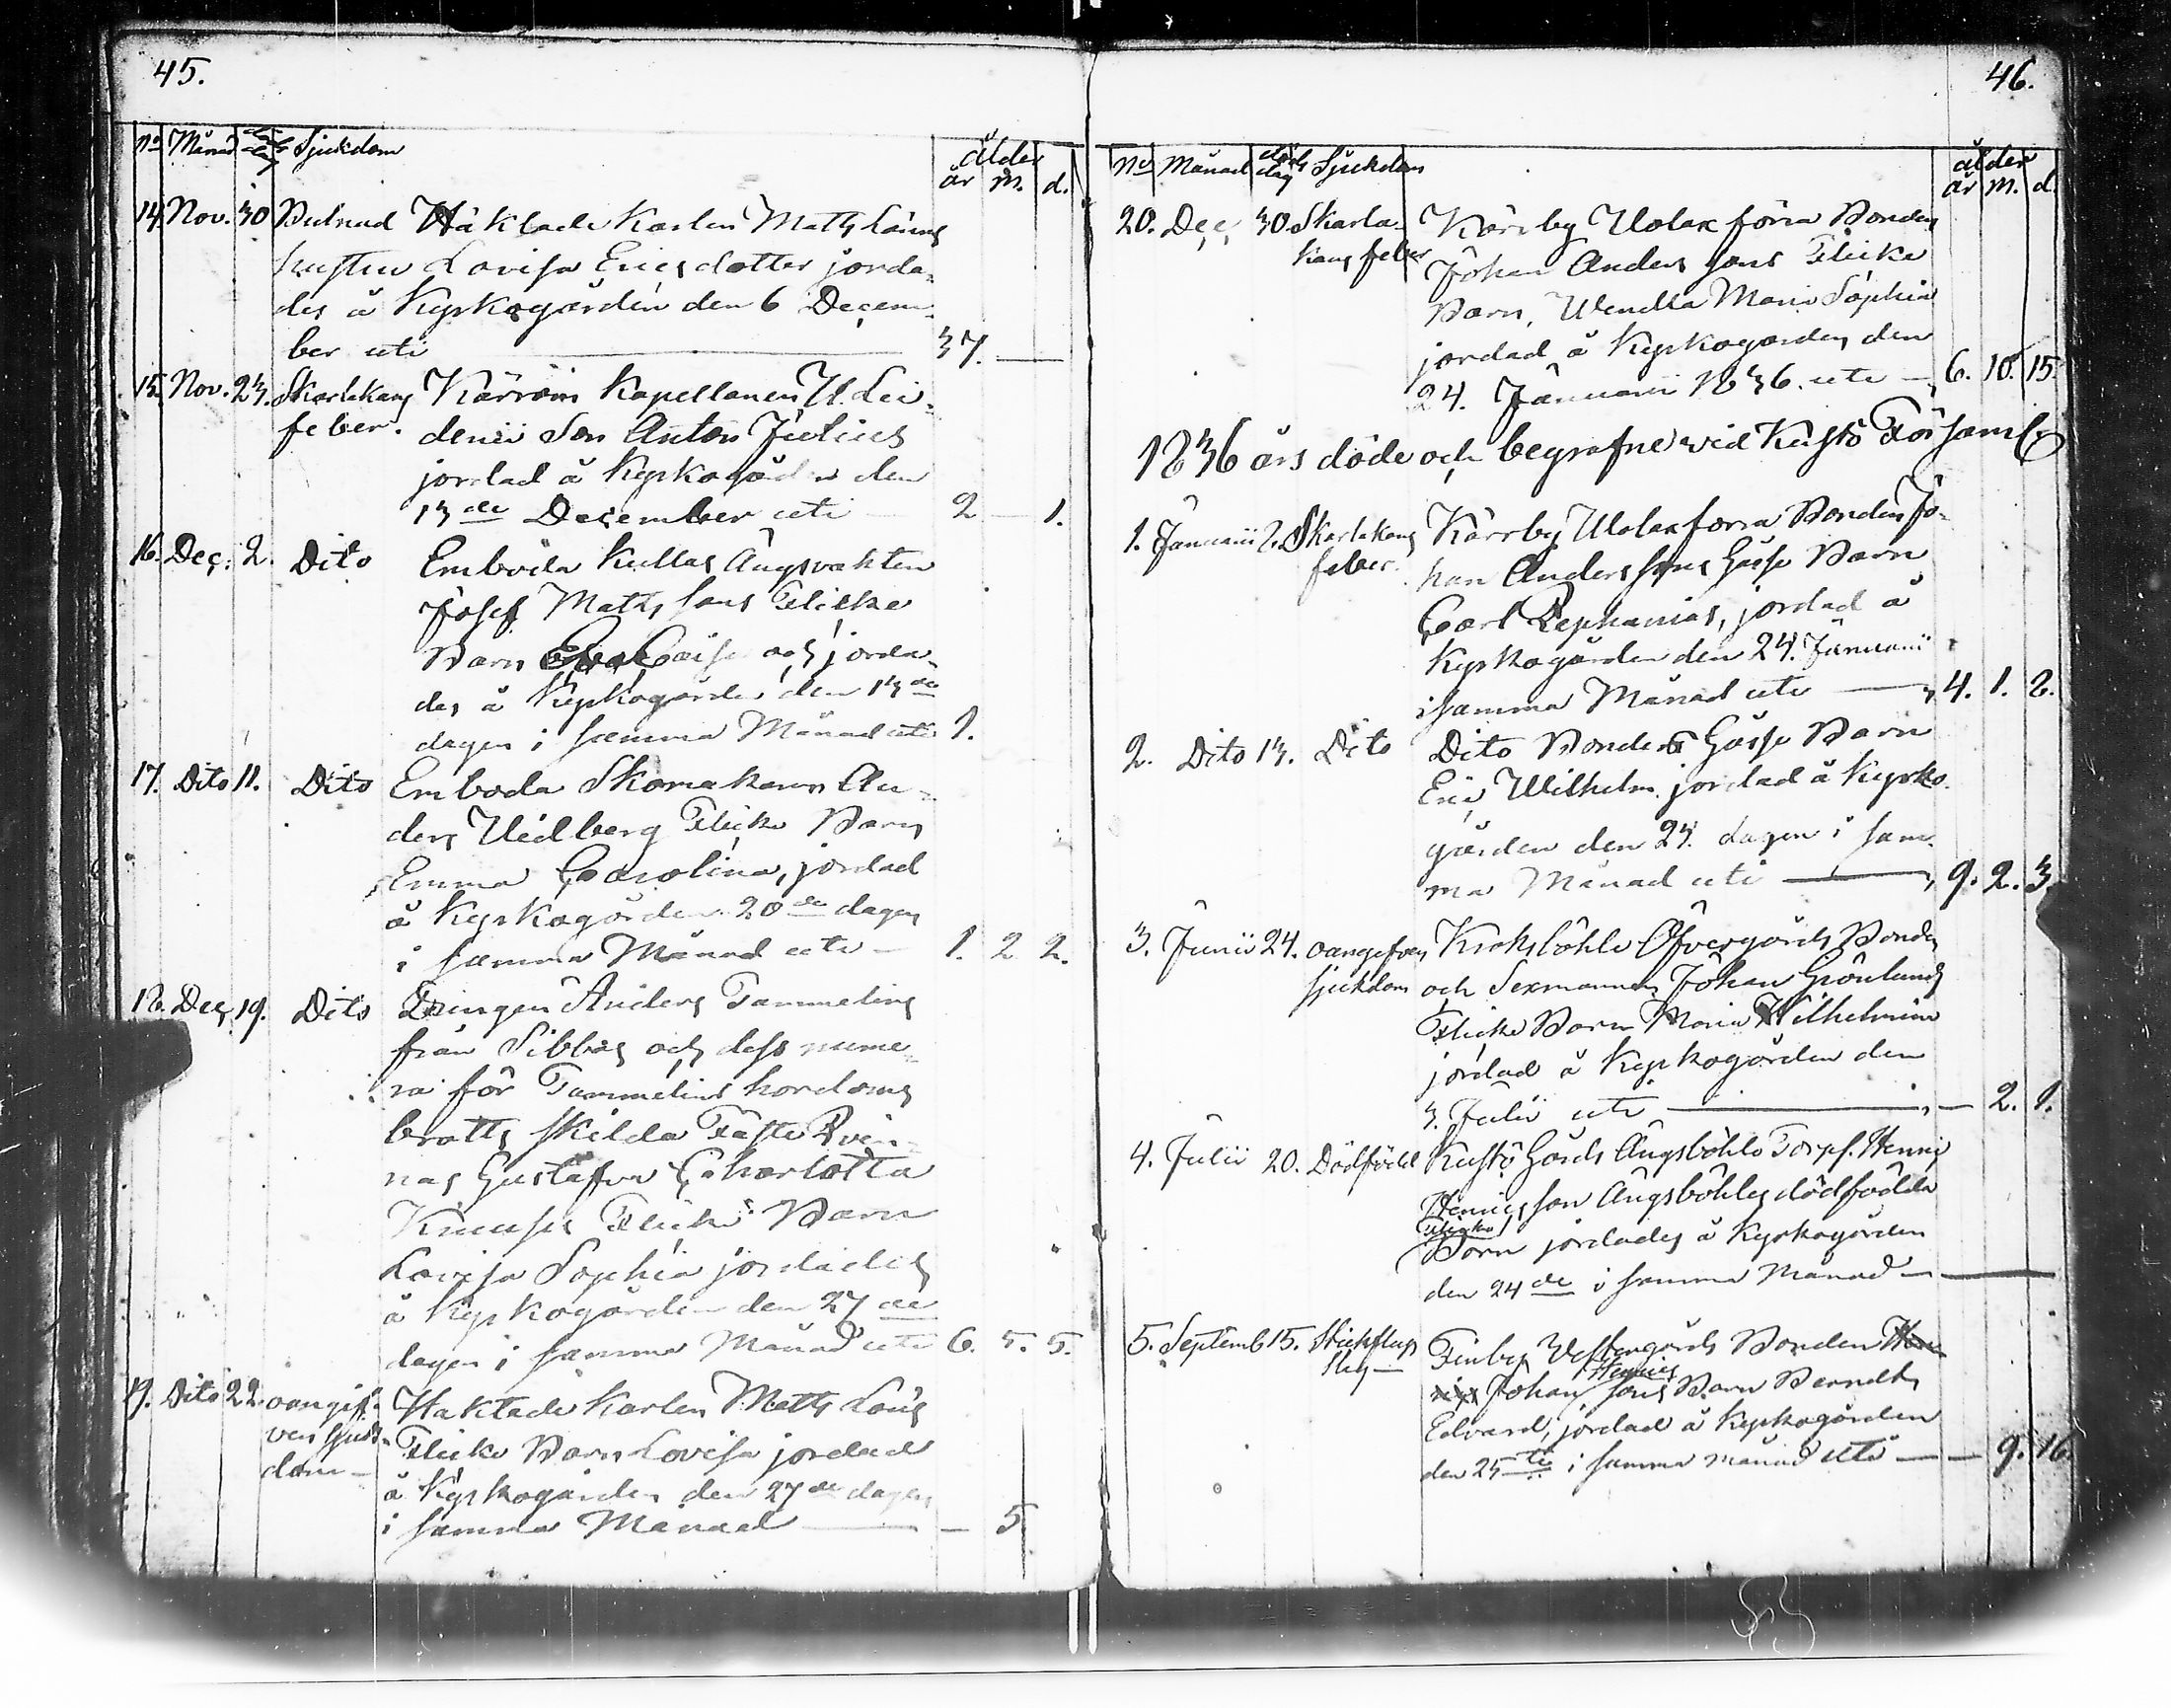 45.
No Månad döds dag Sjukdom ålder
år m. d.
14. Nov. 30 Häktade Karlen Matts Löings
hustru Lovisa Ericsdotter jorda-
des å Kyrkogården den 6 Decem-
ber uti 37. —
15. Nov. 23. Skarlakans Kapellanen
feber. Son Anton Julius
jordad å Kyrkogården den
13de December uti — 2 — 1.
16. Dec: 2. Dito Emböda Kullas Ängsvakten
Josef Mats sons Flicke
Barn och jorda-
des å Kyrkogården den 13de
dagen i samma Månad uti 1.
17. Dito 11. Dito Emboda Skomakaren An-
ders Vidberg Flicke Barn
Emma Carolina, jordad
å Kyrkogården 20de dagen
i samma Månad uti — 1. 2 2.
18. Dec. 19. Dito Drängen Anders Tammelins
från Sibbas och dess nume-
ra för Tammelins hordoms
brotts skilda Fäste Qvin-
nas Gustafva Charlotta
Flicke Barn
Lovisa Sophia jordades
å Kyrkogården den 27de
dagen i samma Månad uti 6. 5. 5.
19. Dito 22. oangif- Häktade Karlen Matts Löigs
ven sjuk- Flicke Barn Lovisa jordad
dom — å Kyrkogården den 27de dagen
i samma Månad — — 5
46.
No Månad döds dag Sjuckdom ålder
år m. d.
20. Dec. 30. Skarla- Kärrby Uolax förra Bonden
kans feber Johan Anders sons Flicke
Barn, Wendla Maria Sophia
jordad å Kyrkogården den
24. Januarii 1836. uti — 6. 10. 15.
1836 års döde och begrafne wid Kustö Församl:
1. Januarii 2. Skarlakans Kärrby Uolax förra Bonden Jo-
feber. han Anders sons Gosse Barn
Carl Zephanias, jordad å
Kyrkogården den 24. Januarii
i samma Månad uti — 4. 1. 2.
2. Dito 13. Dito Dito Bondens Gosse Barn
Eric Wilhelm jordad å Kyrko-
gården den 24. dagen i sam-
ma Månad uti — 9. 2. 3.
3. Junii 24. oangifven Kroksböhle Öfvergårds Bonden
sjuckdom och Sexmannen Johan Grönlunds
Flicke Barn Maria Wilhelmina
jordad å Kyrkogården den
3. Julii uti — — 2. 1.
4. Julii 20. Dödfödd Kustö Gårds Ängsböhle Torp. Henric
Henricsson Ängsböhles dödfödda
Flicke
Barn jordades å Kyrkogården
den 24de i samma Månad —
5. Septemb 15. Finby Westergårds Bonden
Henrics
Johan sons Barn Berndt
Edvard, jordad å Kyrkogården
den 25te i samma månad uti — — 9. 16.